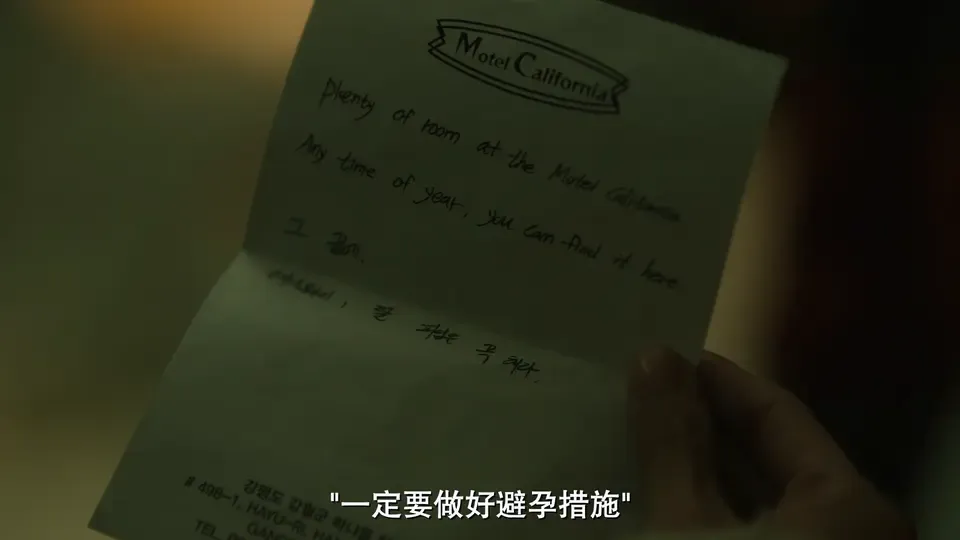 Motel California
Plenty of room at the Motel California
Any time of year, you can find it here
그
딸
피임은 꼭 해라.
강원도
# 498-1, HAYU-RI,
TEL
"一定要做好避孕措施"